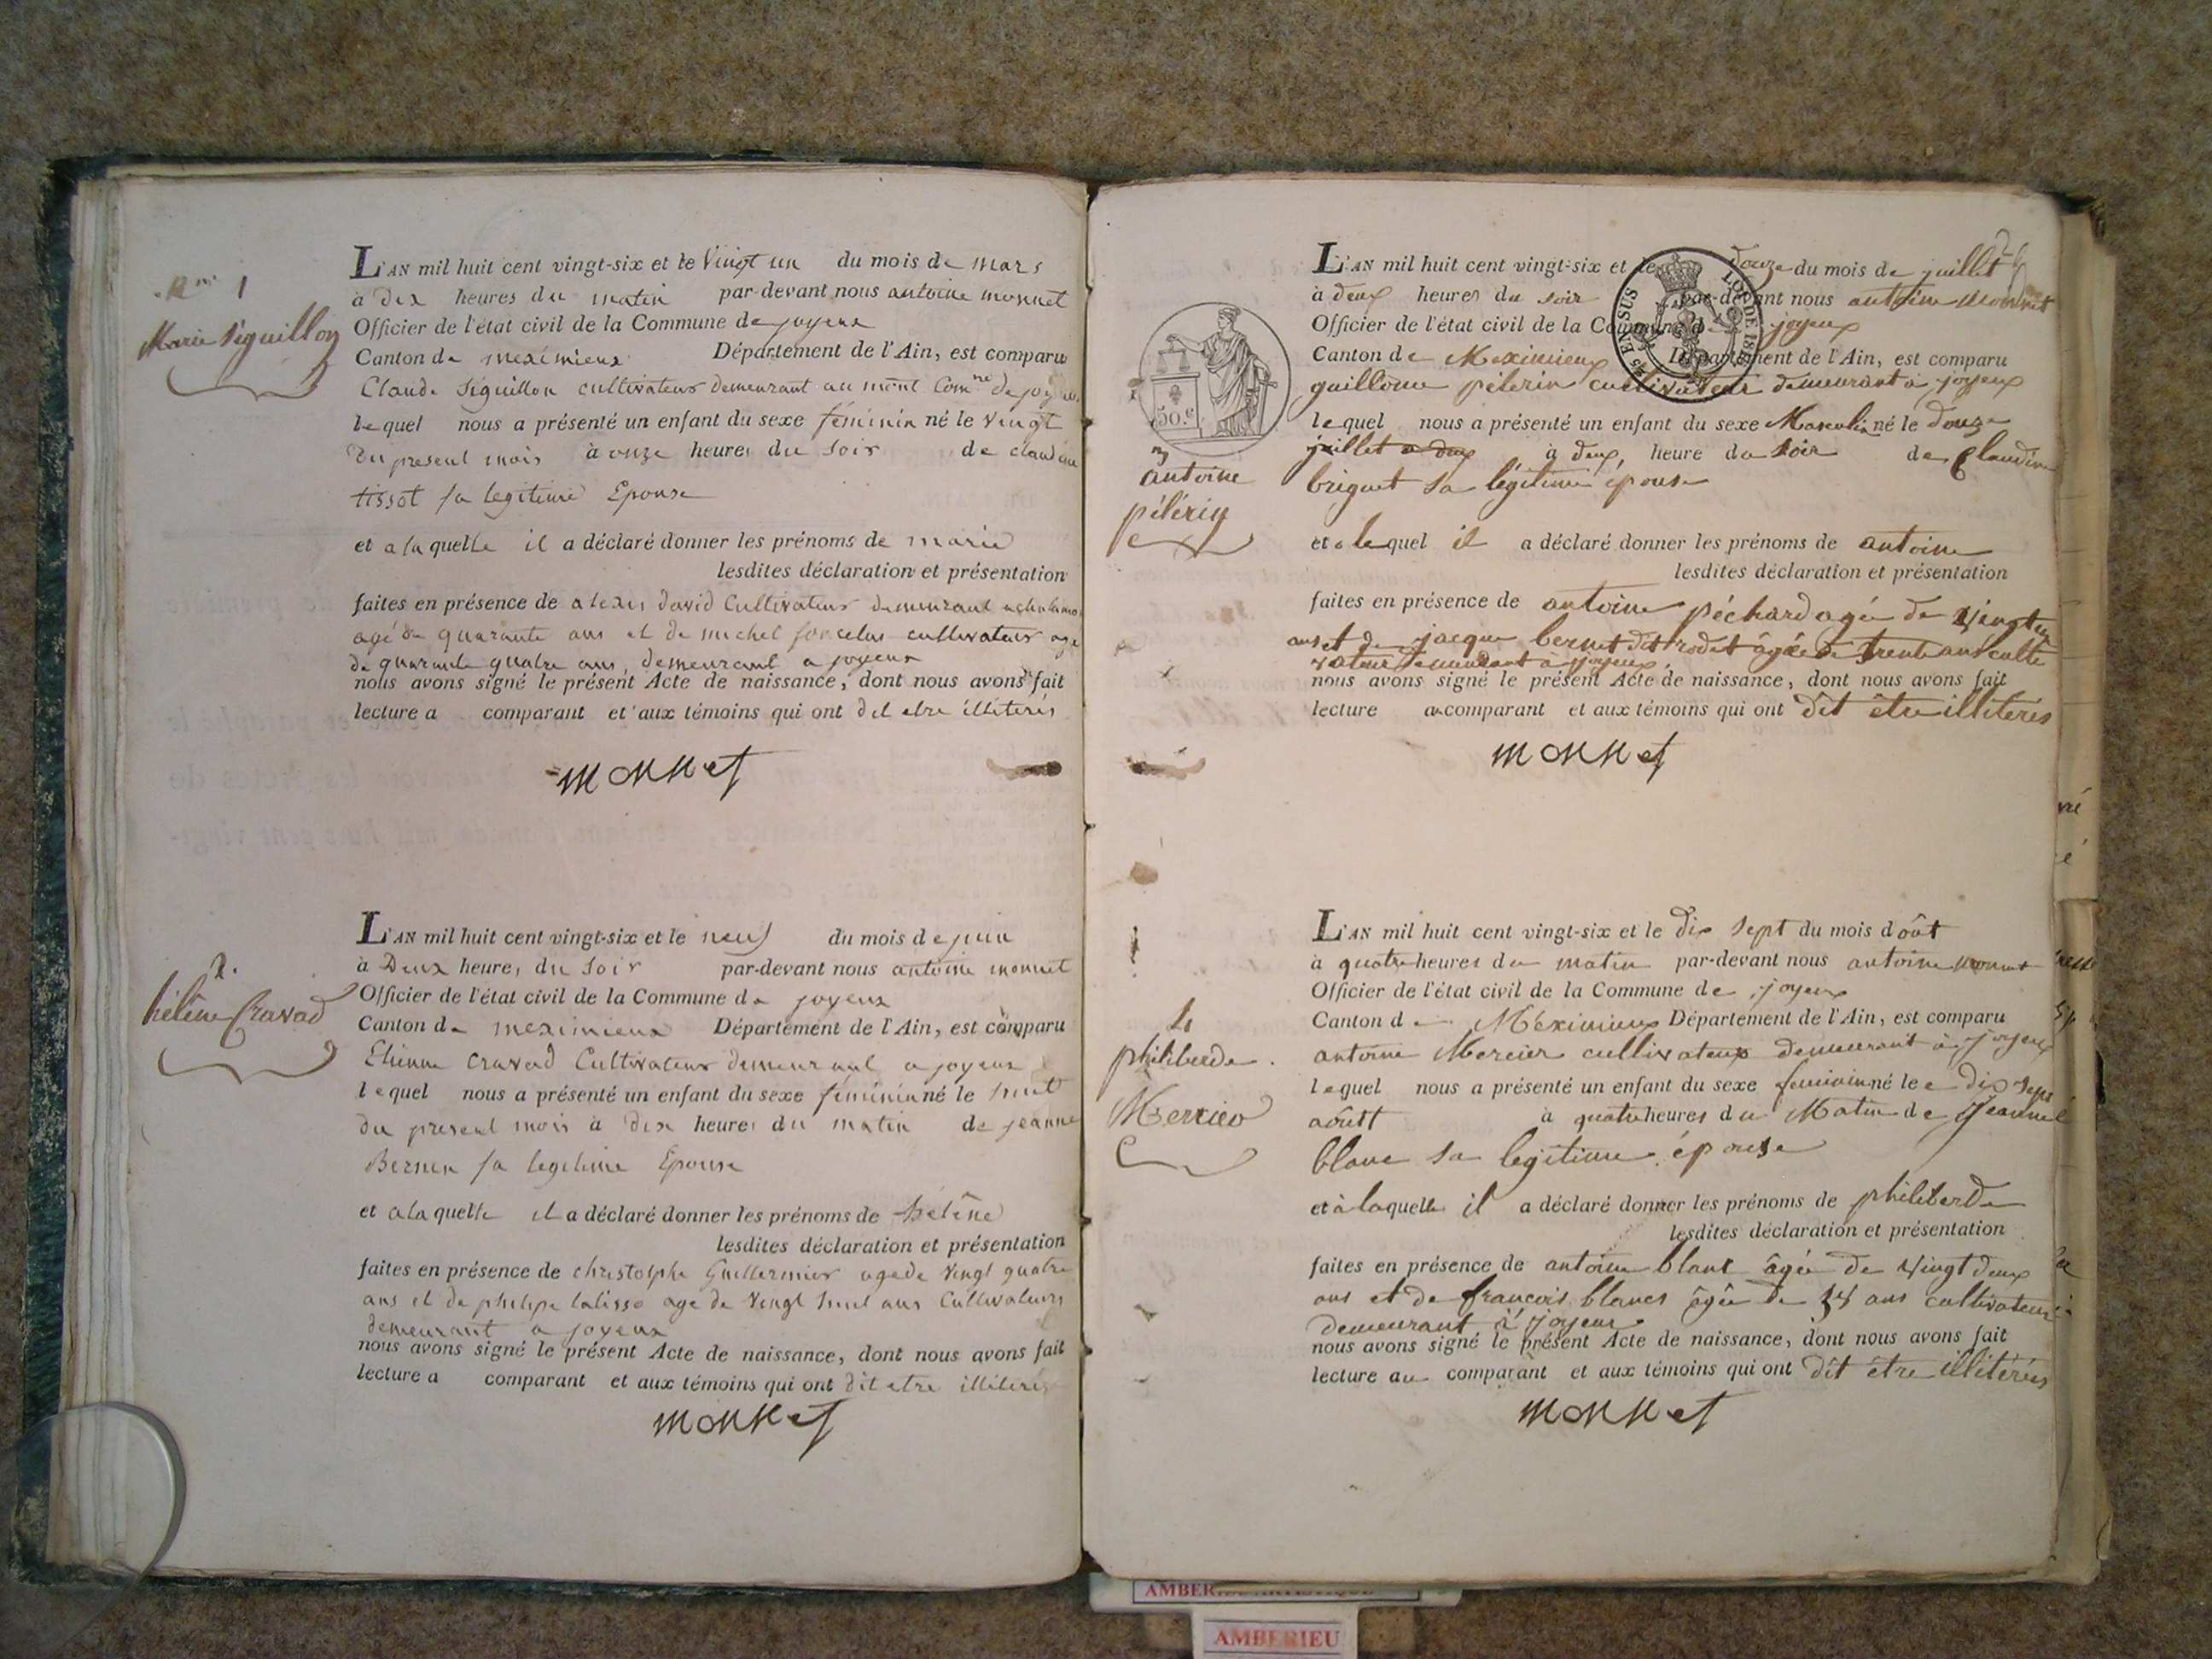 N.ro 1
Marie Séguillon
L'AN mil huit cent vingt-six et le vingt un du mois de mars
à dix heures du matin par-devant nous antoine monnet
Officier de l'état civil de la Commune de joyeux
Canton de meximieux Département de l'Ain, est comparu
Claude Séguillon cultivateur demeurant au mont Com.ne de joyeux
lequel nous a présenté un enfant du sexe féminin né le vingt
du present mois à onze heures du soir de claudine
tissot sa legitime Epouse
et a laquelle il a déclaré donner les prénoms de marie
lesdites déclaration et présentation
faites en présence de alexis david Cultivateur demeurant
agé de quarante ans et de michel cultivateur agé
de quarante quatre ans, demeurant a joyeux
nous avons signé le présent Acte de naissance, dont nous avons fait
lecture a comparant et aux témoins qui ont dit etre illiteres
monnet
2.
hélène Cravad
L'AN mil huit cent vingt-six et le neuf du mois de juin
à Deux heures du soir par-devant nous antoine monnet
Officier de l'état civil de la Commune de joyeux
Canton de meximieux Département de l'Ain, est comparu
Etienne Cravad Cultivateur demeurant a joyeux
lequel nous a présenté un enfant du sexe féminin né le huit
du present mois à dix heures du matin de jeanne
sa legitime Epouse
et a laquelle il a déclaré donner les prénoms de hélène
lesdites déclaration et présentation
faites en présence de christolphe Guillermier age de vingt quatre
ans et de philipe lalisse age de vingt huit ans Cultivateurs
demeurant a joyeux
nous avons signé le présent Acte de naissance, dont nous avons fait
lecture a comparant et aux témoins qui ont dit etre illiteres
monnet
50.c
3
antoine
pélerin
L'AN mil huit cent vingt-six et le douze du mois de juillet
à deux heures du soir par-devant nous antoine monnet
Officier de l'état civil de la Commune de joyeux
Canton de Meximieux Département de l'Ain, est comparu
guillome pélerin cultivateur demeurant à joyeux
lequel nous a présenté un enfant du sexe Masculin né le douze
juillet a deux à deux, heure du soir de Claudine
briguet sa légitime épouse
et a lequel il a déclaré donner les prénoms de antoine
lesdites déclaration et présentation
faites en présence de antoine péchard agée de vingt
ans et de jacque bernet dit rodet âgée de trente ans culti
vateur demeurant à joyeux
nous avons signé le présent Acte de naissance, dont nous avons fait
lecture au comparant et aux témoins qui ont dît être illitérés
monnet
EN SUS
LOI DE
4
philiberde
Mercier
L'AN mil huit cent vingt-six et le dix sept du mois d'oût
à quatre heures du matin par-devant nous antoine monnet
Officier de l'état civil de la Commune de joyeux
Canton de Meximieux Département de l'Ain, est comparu
antoine Mercier cultivateur demeurant à joyeux
lequel nous a présenté un enfant du sexe feminin né le dix sept
aoûtt à quatre heures du Matin de Jeanne
blanc sa legitime épouse
et à laquelle il a déclaré donner les prénoms de philiberde
lesdites déclaration et présentation
faites en présence de antoine blanc âgée de vingt deux
ans et de francois blancs âgée de 34 ans cultivateurs
demeurant à joyeux
nous avons signé le présent Acte de naissance, dont nous avons fait
lecture au comparant et aux témoins qui ont dît être illitérés
monnet
AMBERIEU